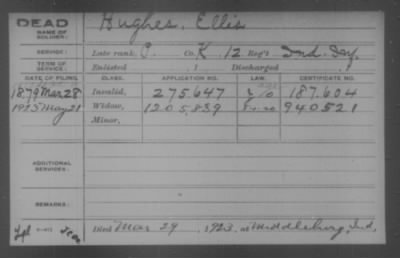 DEAD
NAME OF SOLDIER: Hughes, Ellis
SERVICE: Late rank, P. Co. K, 12 Reg't Ind. Inf.
TERM OF SERVICE: Enlisted , Discharged ,
DATE OF FILING. CLASS. APPLICATION NO. LAW. CERTIFICATE NO.
1879 Mar 28 Invalid, 275.647 187.604
1925 May 21 Widow, 1205,839 940521
Minor,
ADDITIONAL SERVICES:
REMARKS:
Died Mar 29, 1923, at Middlebury, Ind.